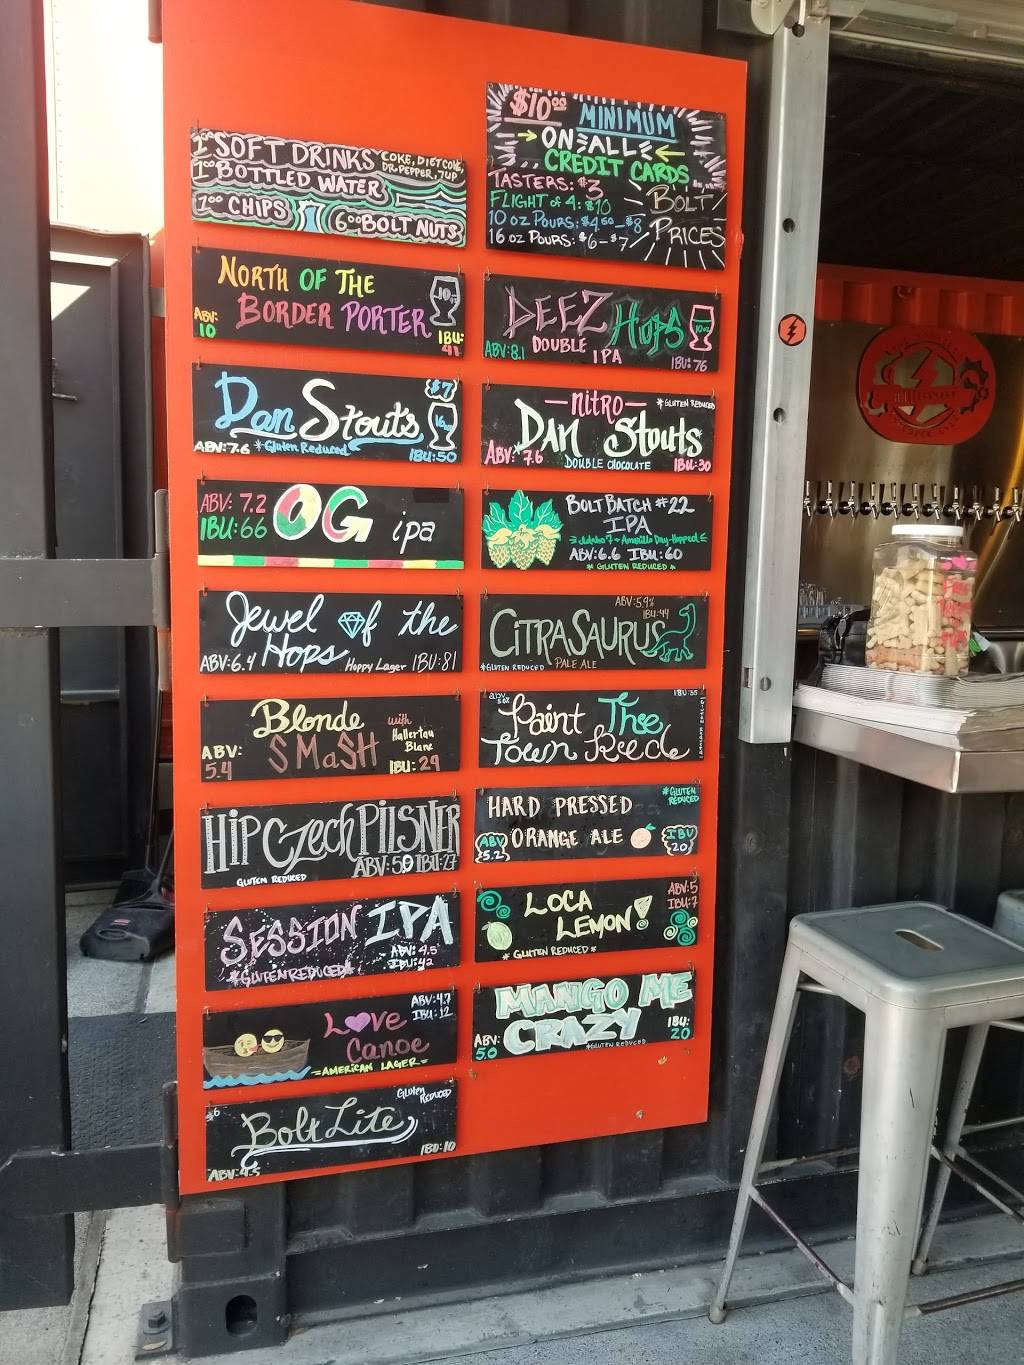 1.00 SOFT DRINKS COKE, DIET COKE,
DR. PEPPER, 7UP
1.00 BOTTLED WATER
1.00 CHIPS 6.00 BOLT NUTS
$10.00 MINIMUM
ON ALL
CREDIT CARDS
TASTERS: $3
FLIGHT of 4: $10
10 oz POURS: $4.50-$8
16 oz POURS: $6-$7
BOLT
PRICES
NORTH OF THE
BORDER PORTER
10oz
ABV:
10
IBU:
41
DEEZ HOPS
DOUBLE IPA
10oz
ABV: 8.1
IBU: 76
Dan Stouts
$7
16oz
ABV: 7.6 *Gluten Reduced
IBU: 50
-nitro-
*GLUTEN REDUCED
DAN Stouts
ABV: 7.6 DOUBLE CHOCOLATE IBU: 30
ABV: 7.2
IBU: 66
OG ipa
BOLT BATCH #22
IPA
Idaho 7 + Amarillo Dry-Hopped
ABV: 6.6 IBU: 60
* GLUTEN REDUCED *
Jewel of the
Hops
ABV: 6.4 Hoppy Lager IBU: 81
ABV: 5.9%
IBU: 44
CITRASAURUS
*GLUTEN REDUCED PALE ALE
Blonde
SMaSH
with
Hallertau
Blanc
ABV:
5.4
IBU: 29
abv
IBU: 35
Paint Thee
Town Reede
HIP Czech PILSNER
ABV: 5.9 IBU: 27
GLUTEN REDUCED
HARD PRESSED
*GLUTEN
REDUCED
ORANGE ALE
ABV
5.2
IBU
20
SESSION IPA
ABV: 4.5
IBU: 42
*GLUTEN REDUCED*
LOCA
LEMON!
ABV: 5
IBU: 7
* GLUTEN REDUCED *
ABV: 4.7
IBU: 12
Love
Canoe
=AMERICAN LAGER=
MANGO ME
CRAZY
ABV:
5.0
IBU:
20
*GLUTEN REDUCED
$6
Gluten
REDUCED
Bolt Lite
ABV: 4.5
IBU: 10